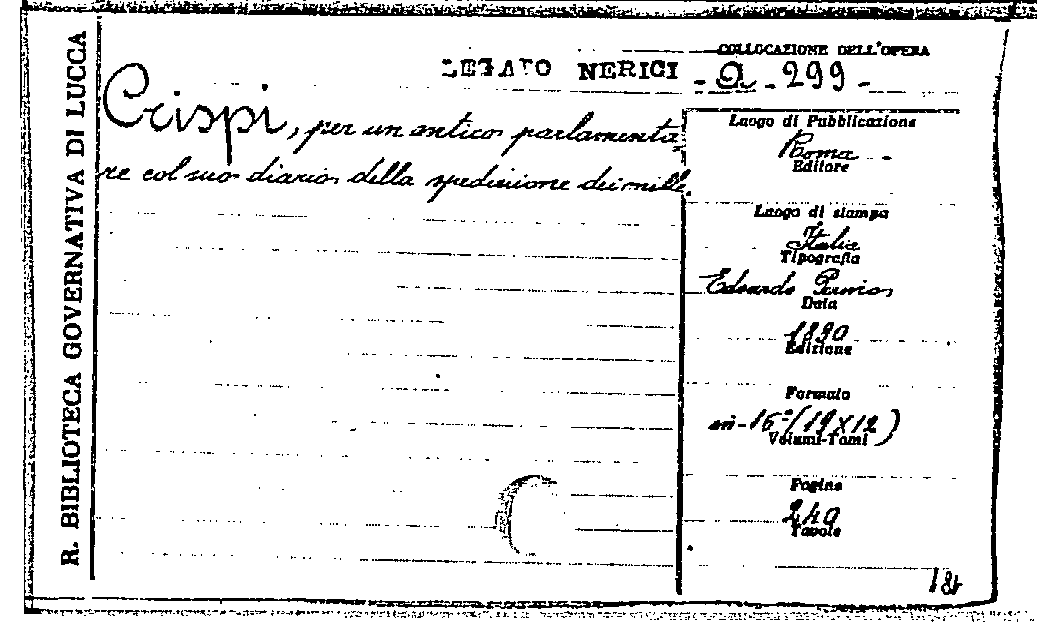 R. BIBLIOTECA GOVERNATIVA DI LUCCA
COLLOCAZIONE DELL'OPERA
LEGATO NERICI - a - 299 -
Crispi, per un antico parlamenta-
re col suo diario della spedizione dei mille.
Luogo di Pubblicazione
Roma
Editore
Luogo di stampa
Italia
Tipografia
Edoardo Perino
Data
1890
Edizione
Formato
in-16º (19 X 12)
Volumi-Tomi
Pagine
240
Tavole